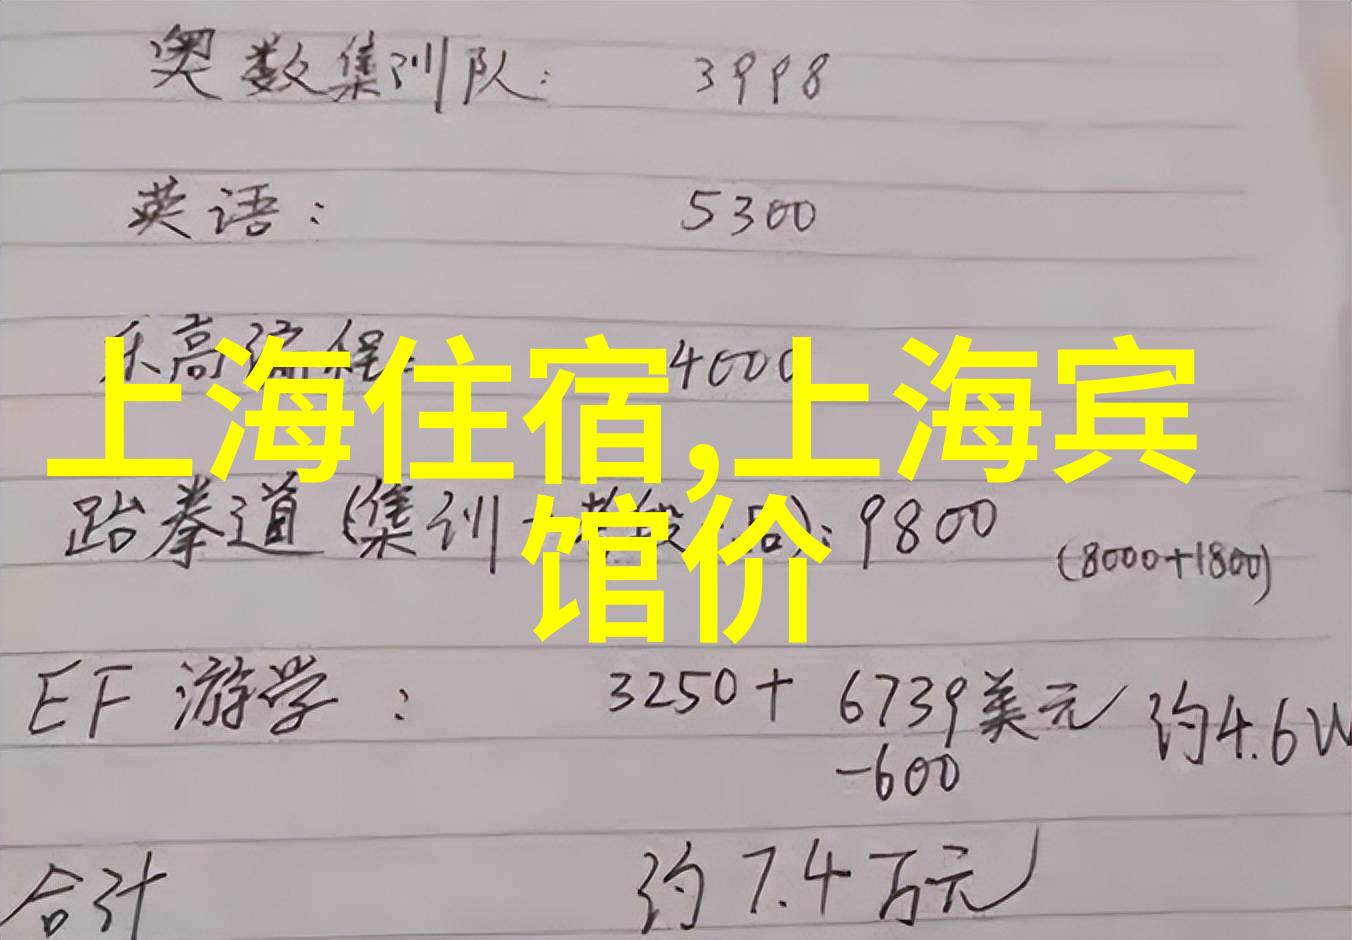 奥数集训队: 3998
英语: 5300
乐高编程: 4000
上海住宿,上海宾
馆价
跆拳道(集训 : 9800 (8000+1800)
EF 游学: 3250+ 6739美元 约4.6W
-600
合计 约7.4万元